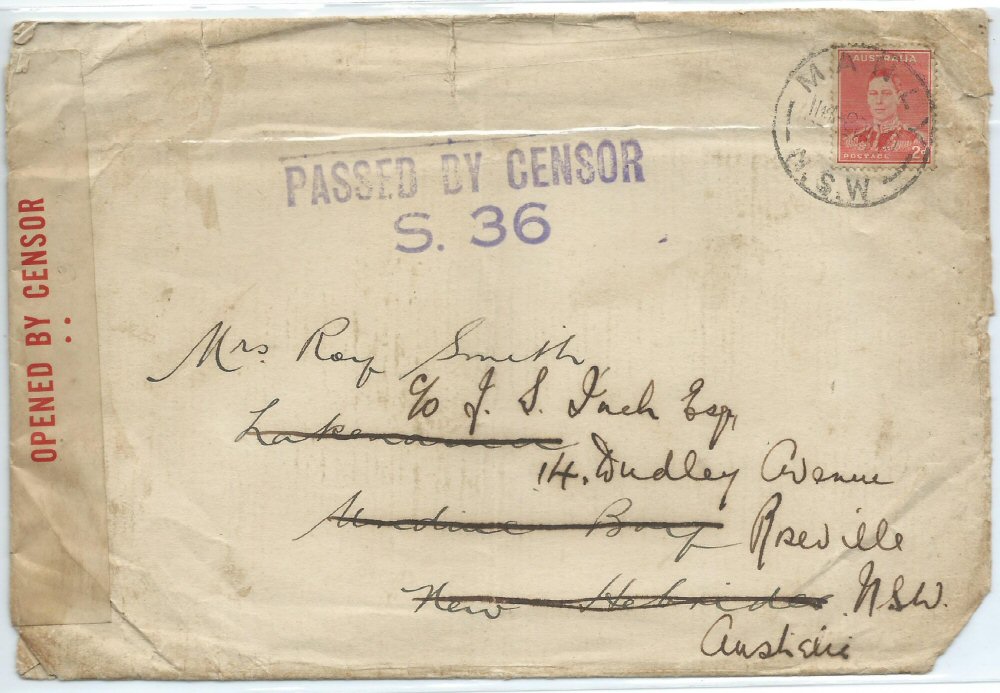 AUSTRALIA
POSTAGE
2D
MANLY
N.S.W
PASSED BY CENSOR
S. 36
OPENED BY CENSOR
Mrs Roy Smith
c/o J. S. Inch Esq,
14. Dudley Avenue
Undine Bay
Roseville
New Hebrides
N.S.W.
Australia